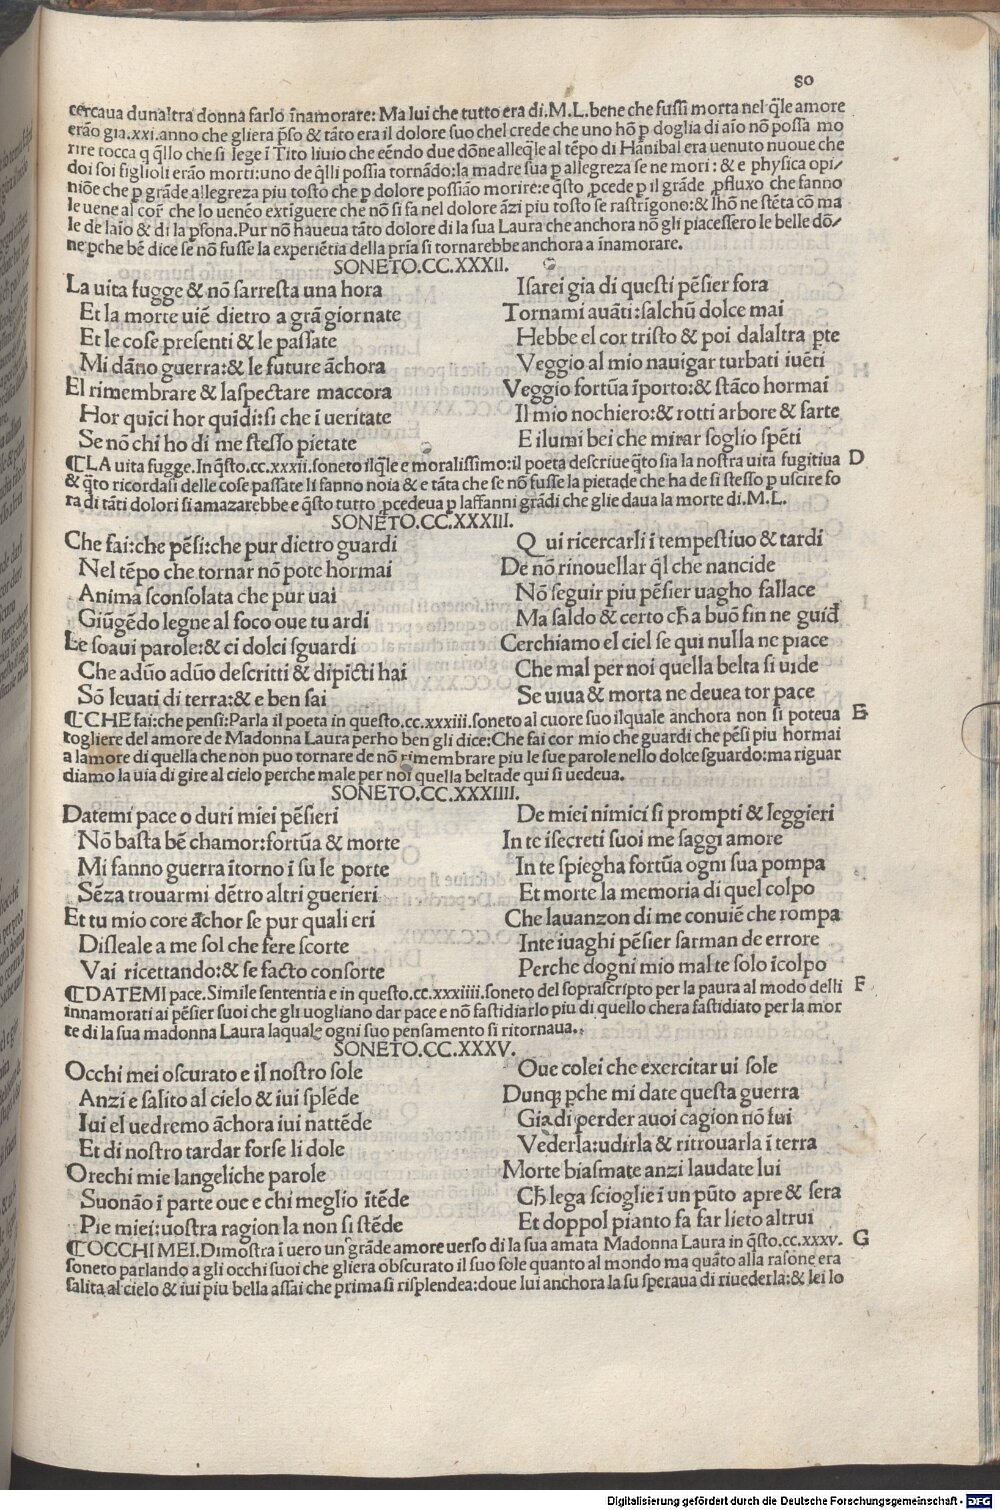 80
cercaua dunaltra donna farlo īnamorare: Ma lui che tutto era di.M.L.bene che fussi morta nel q̄le amore
erāo gia.xxi.anno che gliera p̄so & tāto era il dolore suo chel crede che uno hō p̄ doglia di aīo nō possa mo
rire tocca q q̄llo che si lege ī Tito liuio che eēndo due dōne alleq̄le al tēpo di Hānibal era uenuto nuoue che
doi soi figlioli erāo morti: uno de q̄lli possia tornādo: la madre sua p allegreza se ne mori : & e physica opi/
niōe che p grāde allegreza piu tosto che p dolore possiāo morire: e q̄sto ꝓcede p il grāde ꝓfluxo che fanno
le uene al cor che lo uenēo extiguere che nō si fa nel dolore āzi piu tosto se rastrīgono: & lhō ne stēta cō ma
le de laīo & di la psona. Pur nō haueua tāto dolore di la sua Laura che anchora nō gli piacessero le belle dō/
ne pche bē dice se nō fusse la experiētia della pria si tornarebbe anchora a inamorare.
SONETO.CC.XXXII.
La uita fugge & nō sarresta una hora
Et la morte uiē dietro a grā giornate
Et le cose presenti & le passate
Mi dāno guerra: & le future āchora
El rimembrare & laspectare maccora
Hor quici hor quidi: si che ī ueritate
Se nō chī ho di me stesso pietate
Isarei gia di questi pēsier fora
Tornami auāti: salchū dolce mai
Hebbe el cor tristo & poi dalaltra pte
Veggio al mio nauigar turbati iuēti
Veggio fortūa īporto: & stāco hormai
Il mio nochiero: & rotti arbore & sarte
E ilumi bei che mirar soglio spēti
¶LA uita fugge. In q̄sto.cc.xxxii.soneto ilq̄le e moralissimo: il poeta descriue q̄to sia la nostra uita fugitiua D
& q̄to ricordasi delle cose passate li fanno noia & e tāta che se nō fusse la pietade che ha de si stesso p uscire fo
ra di tāti dolori si amazarebbe e q̄sto tutto ꝓcedeua p laffanni grādi che glie daua la morte di.M.L.
SONETO.CC.XXXIII.
Che fai: che pēsi: che pur dietro guardi
Nel tēpo che tornar nō pote hormai
Anima sconsolata che pur uai
Giūgēdo legne al foco oue tu ardi
Le soaui parole: & ci dolci sguardi
Che adūo adūo descritti & dipicti hai
Sō leuati di terra: & e ben sai
Qui ricercarli ī tempestiuo & tardi
De nō rinouellar q̄l che nancide
Nō seguir piu pēsier uagho fallace
Ma saldo & certo ch̄ a buō fin ne guid
Cerchiamo el ciel se qui nulla ne piace
Che mal per noi quella belta si uide
Se uiua & morta ne deuea tor pace
¶CHE fai: che pensi: Parla il poeta in questo.cc.xxxiii.soneto al cuore suo ilquale anchora non si poteua E
togliere del amore de Madonna Laura perho ben gli dice: Che fai cor mio che guardi che pēsi piu hormai
a lamore di quella che non puo tornare de nō rimembrare piu le sue parole nello dolce sguardo: ma riguar
diamo la uia di gire al cielo perche male per noi quella beltade qui si uedeua.
SONETO.CC.XXXIIII.
Datemi pace o duri miei pēsieri
Nō basta bē chamor: fortūa & morte
Mi fanno guerra ītorno ī su le porte
Sēza trouarmi dētro altri guerieri
Et tu mio core āchor se pur quali eri
Disleale a me sol che fere scorte
Vai ricettando: & se facto consorte
De miei nimici si prompti & leggieri
In te isecreti suoi me saggi amore
In te spiegha fortūa ogni sua pompa
Et morte la memoria di quel colpo
Che lauanzon di me conuiē che rompa
Inte iuaghi pēsier sarman de errore
Perche dogni mio mal te solo īcolpo
¶DATEMI pace. Simile sententia e in questo.cc.xxxiiii.soneto del soprascripto per la paura al modo delli F
innamorati ai pēsier suoi che gli uogliano dar pace e nō fastidiarlo piu di quello chera fastidiato per la mor
te di la sua madonna Laura laquale ogni suo pensamento si ritornaua.
SONETO.CC.XXXV.
Occhi mei oscurato e il nostro sole
Anzi e salito al cielo & iui splēde
Iui el uedremo āchora iui nattēde
Et di nostro tardar forse li dole
Orechi mie langeliche parole
Suonāo ī parte oue e chi meglio ītēde
Pie miei: uostra ragion la non si stēde
Oue colei che exercitar ui sole
Dunq; pche mi date questa guerra
Gia di perder auoi cagion nō fui
Vederla: udirla & ritrouarla ī terra
Morte biasmate anzi laudate lui
Ch̄ lega scioglie ī un pūto apre & sera
Et doppol pianto fa far lieto altrui
¶OCCHI MEI. Dimostra ī uero un grāde amore uerso di la sua amata Madonna Laura in q̄sto.cc.xxxv. G
soneto parlando a gli occhi suoi che gliera obscurato il suo sole quanto al mondo ma quāto alla rasone era
salita al cielo & iui piu bella assai che prima si risplendea: doue lui anchora la su speraua di riuederla: & lei lo
Digitalisierung gefördert durch die Deutsche Forschungsgemeinschaft - DFG